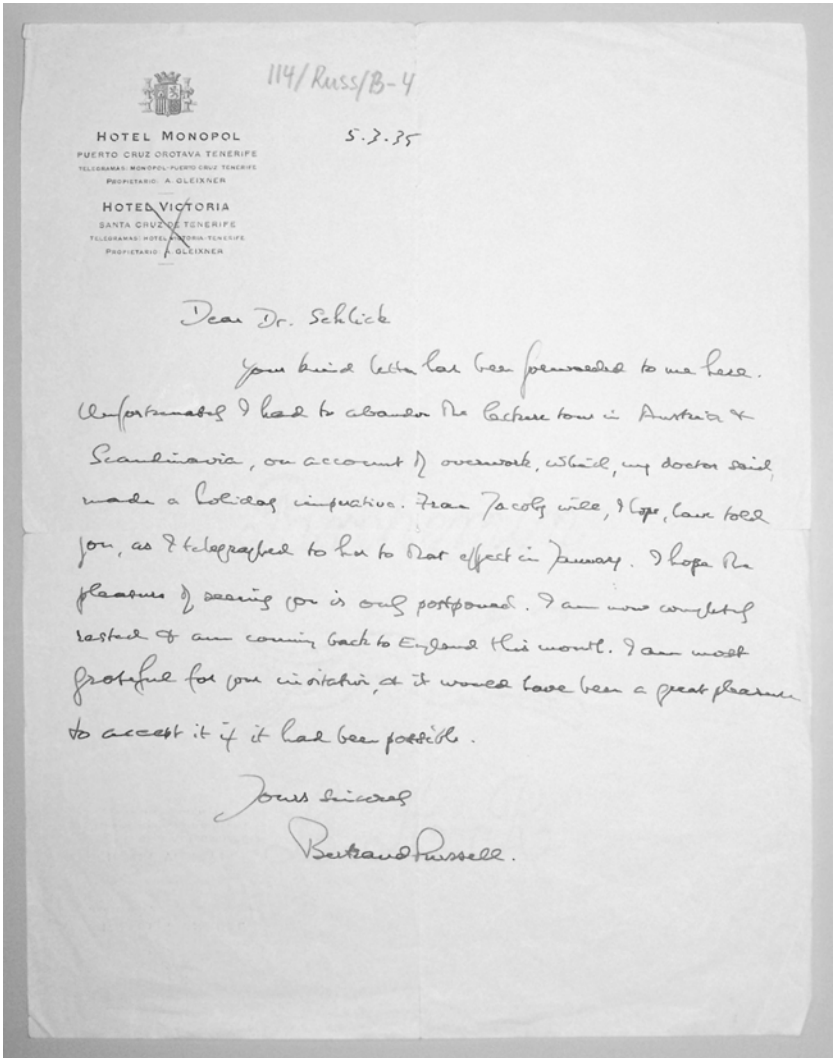 114/Russ/B-4
HOTEL MONOPOL
PUERTO CRUZ OROTAVA TENERIFE
TELEGRAMAS: MONOPOL-PUERTO CRUZ TENERIFE
PROPIETARIO: A. GLEIXNER
5.3.35
HOTEL VICTORIA
SANTA CRUZ DE TENERIFE
TELEGRAMAS: HOTEL VICTORIA-TENERIFE
PROPIETARIO: A. GLEIXNER
Dear Dr. Schlick
Your kind letter has been forwarded to me here.
Unfortunately I had to abandon the lecture tour in Austria &
Scandinavia, on account of overwork, which, my doctor said,
made a holiday imperative. Frau Jacoby will, I hope, have told
you, as I telegraphed to her to that effect in January. I hope the
pleasure of seeing you is only postponed. I am now completely
rested & am coming back to England this month. I am most
grateful for your invitation, & it would have been a great pleasure
to accept it if it had been possible.
Yours sincerely
Bertrand Russell.